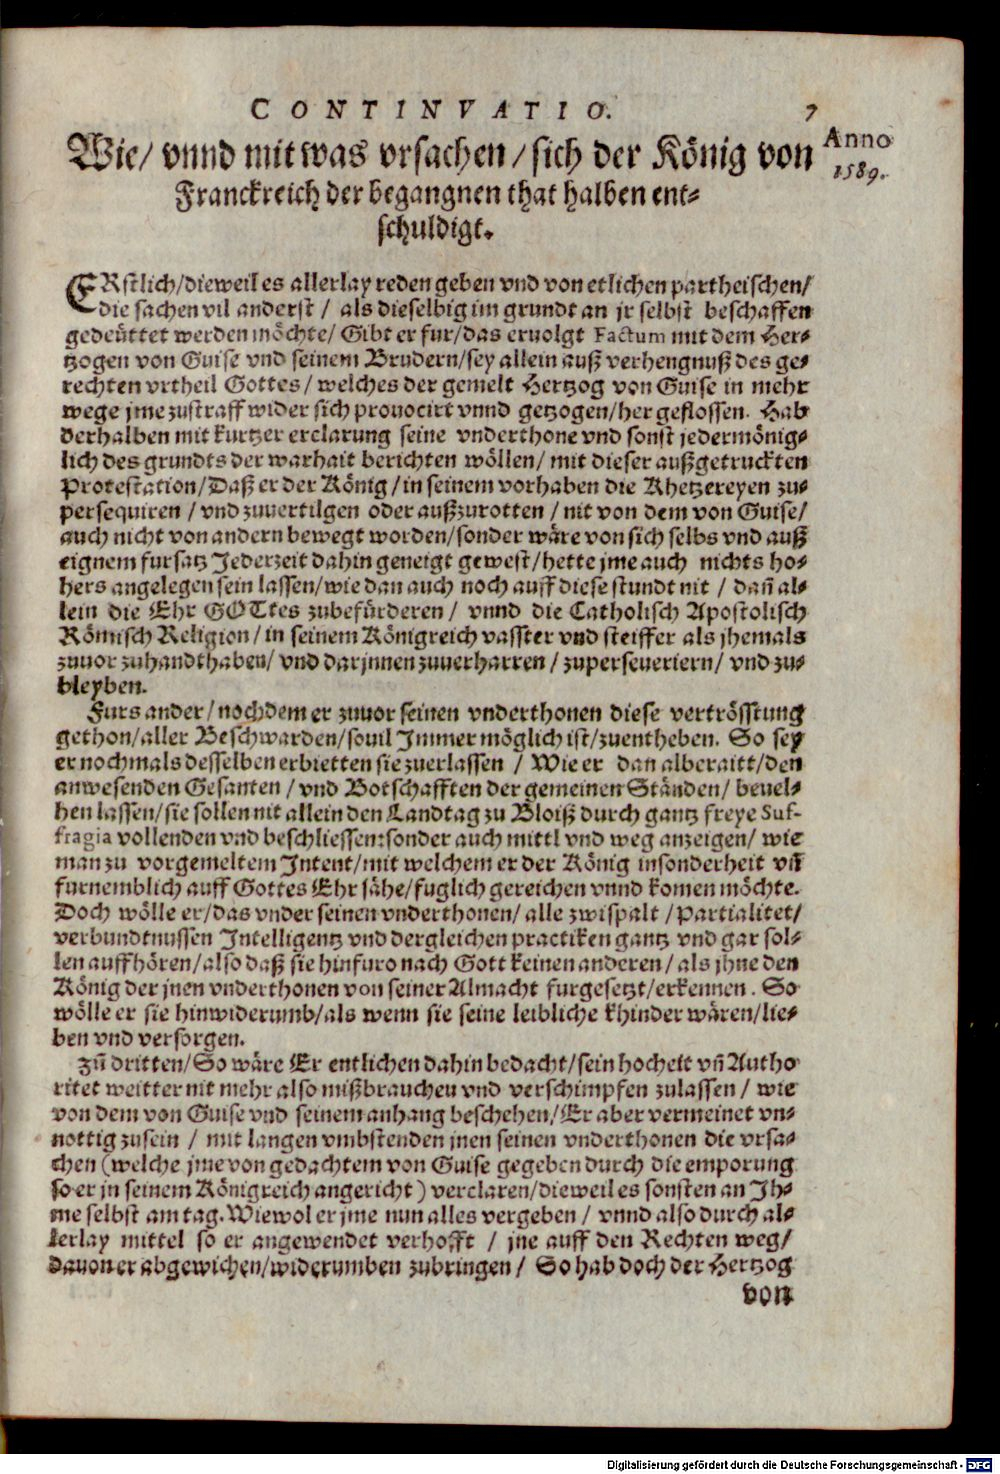 CONTINVATIO. 7
Anno
1589.
Wie/ vnnd mit was vrsachen/ sich der König von
Franckreich der begangnen that halben ent⸗
schuldigt.
ERstlich/ dieweil es allerlay reden geben vnd von etlichen partheischen/
die sachen vil anderst / als dieselbig im grundt an jr selbst beschaffen
gedeüttet werden möchte/ Gibt er fur/ das eruolgt Factum mit dem Her⸗
tzogen von Guise vnd seinem Brudern/ sey allein auß verhengnuß des ge⸗
rechten vrtheil Gottes / welches der gemelt Hertzog von Guise in mehr
wege jme zustraff wider sich prouocirt vnnd getzogen/ her geflossen. Hab
derhalben mit kurtzer erclarung seine vnderthone vnd sonst jedermönig⸗
lich des grundts der warhait berichten wöllen/ mit dieser außgetruckten
Protestation/ Daß er der König / in seinem vorhaben die Khetzereyen zu⸗
persequiren / vnd zuuertilgen oder außzurotten / nit von dem von Guise/
auch nicht von andern bewegt worden/ sonder wäre von sich selbs vnd auß
eignem fursatz Jederzeit dahin geneigt gewest/ hette jme auch nichts ho⸗
hers angelegen sein lassen/ wie dan auch noch auff diese stundt nit / dañ al⸗
lein die Ehr GOTtes zubefürderen / vnnd die Catholisch Apostolisch
Römisch Religion/ in seinem Königreich vasster vnd steiffer als jhemals
zuuor zuhandthaben/ vnd darjnnen zuuerharren / zuperseueriern/ vnd zu⸗
bleyben.
Furs ander/ nochdem er zuuor seinen vnderthonen diese vertrösstung
gethon/ aller Beschwarden/ souil Jmmer möglich ist/ zuentheben. So sey
er nochmals desselben erbietten sie zuerlassen / Wie er dan alberaitt/ den
anwesenden Gesanten / vnd Botschafften der gemeinen Ständen/ beuel⸗
hen lassen/ sie sollen nit allein den Landtag zu Bloiß durch gantz freye Suf-
fragia vollenden vnd beschliessen: sonder auch mittl vnd weg anzeigen/ wie
man zu vorgemeltem Jntent/ mit welchem er der König insonderheit vñ
furnemblich auff Gottes Ehr sähe/ fuglich gereichen vnnd komen möchte.
Doch wölle er/ das vnder seinen vnderthonen/ alle zwispalt / Partialitet/
verbundtnussen Jntelligentz vnd dergleichen practiken gantz vnd gar sol⸗
len auffhören/ also daß sie hinfuro nach Gott keinen anderen / als jhne den
König der jnen vnderthonen von seiner Almacht furgesetzt/ erkennen. So
wölle er sie hinwiderumb/ als wenn sie seine leibliche khinder wären/ lie⸗
ben vnd versorgen.
Zũ dritten/ So wäre Er entlichen dahin bedacht/ sein hocheit vñ Autho
ritet weitter nit mehr also mißbrauchen vnd verschimpfen zulassen / wie
von dem von Guise vnd seinem anhang beschehen/ Er aber vermeinet vn⸗
nottig zusein / mit langen vmbstenden jnen seinen vnderthonen die vrsa⸗
chen (welche jme von gedachtem von Guise gegeben durch die emporung
so er in seinem Königreich angericht) verclaren/ dieweil es sonsten an Jh⸗
me selbst am tag. Wiewol er jme nun alles vergeben / vnnd also durch al⸗
lerlay mittel so er angewendet verhofft / jne auff den Rechten weg/
dauon er abgewichen/ widerumben zubringen / So hab doch der Hertzog
von
Digitalisierung gefördert durch die Deutsche Forschungsgemeinschaft - DFG